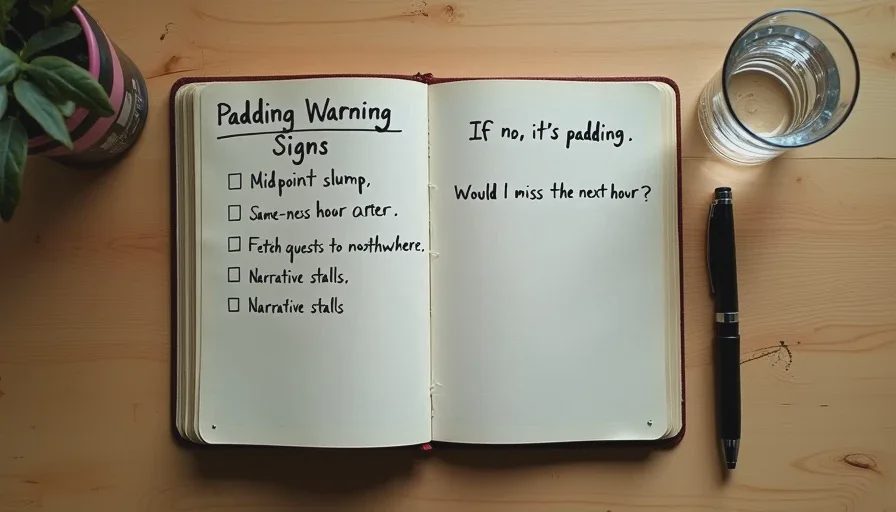 Padding Warning
Signs
Midpoint slump,
Same-ness hour arter.
Fetch quests to nosthwhere.
Narrative stalls.
Narrative stalls
If no, it's padding.
Would I miss the next hour?